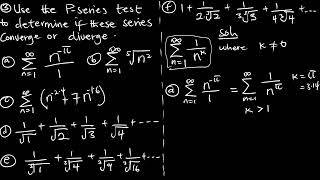 ③ Use the P-series test
to determine if these series
Converge or diverge.
ⓐ ∞∑n=1 n^-π/1 ⓑ ∞∑n=1 ⁵√n²
ⓒ ∞∑n=1 (n^-2.4 + 7n^-1.6)
ⓓ 1/√1 + 1/√2 + 1/√3 + 1/√4 + ---
ⓔ 1/³√1 + 1/³√4 + 1/³√9 + 1/³√16 + ---
ⓕ 1 + 1/2√2 + 1/3√3 + 1/4√4 + ---
Soln
∞∑n=1 1/n^k where K ≠ 0
ⓐ ∞∑n=1 n^-π/1 = ∞∑n=1 1/n^π K = π = 3.14
K > 1